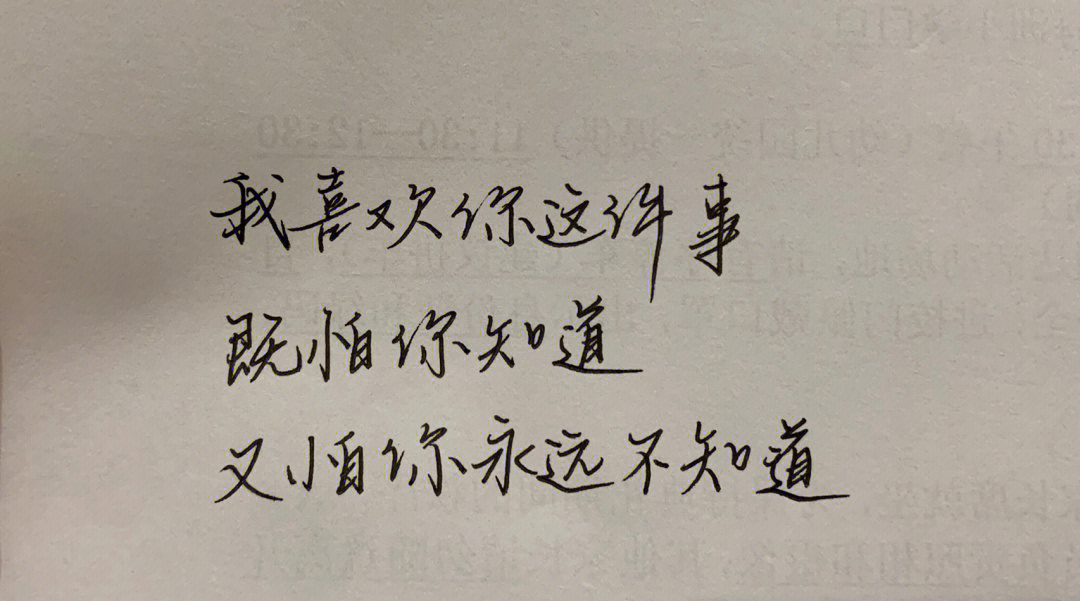 我喜欢你这件事
既怕你知道
又怕你永远不知道